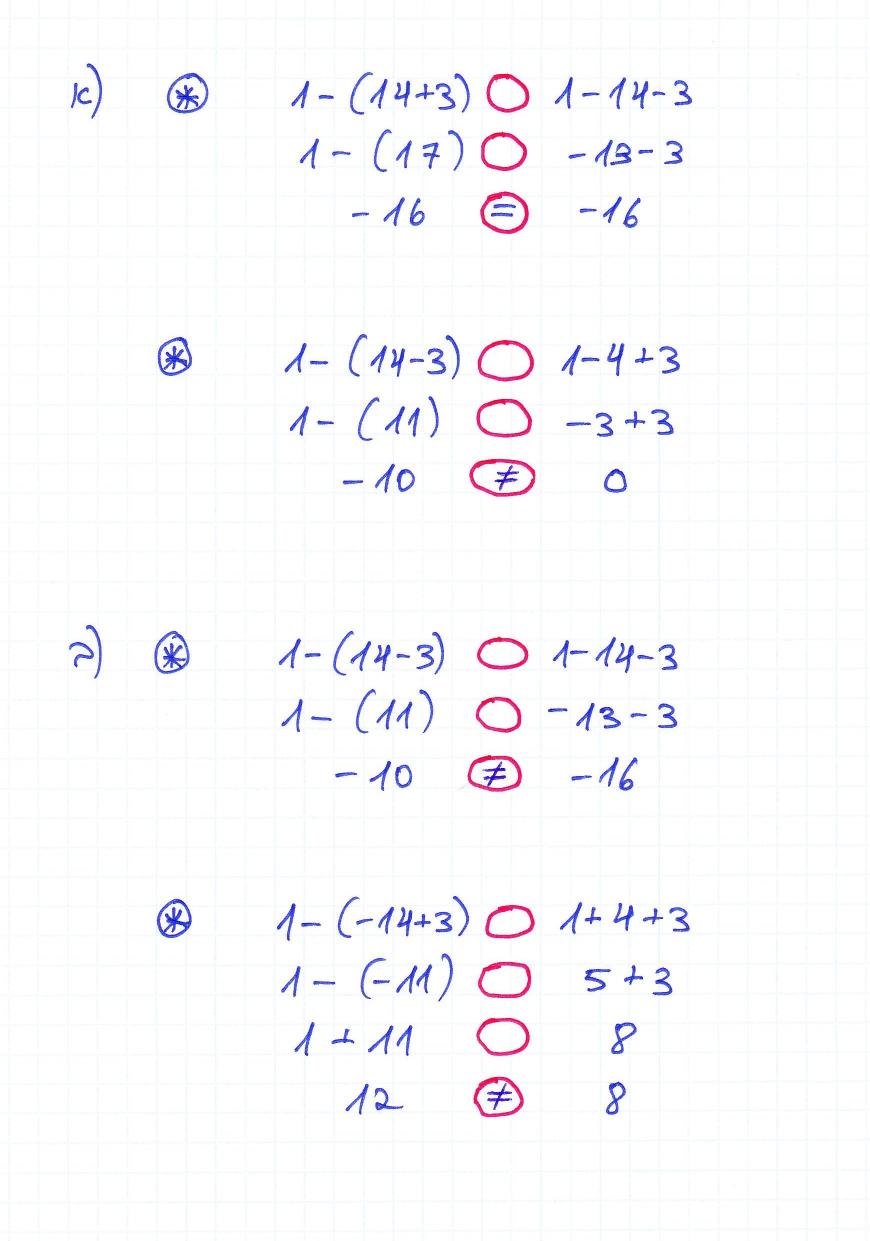 к) * 1 - (14+3) ○ 1-14-3
1 - (17) ○ -13-3
-16 = -16
* 1 - (14-3) ○ 1-4+3
1 - (11) ○ -3+3
-10 ≠ 0
г) * 1-(14-3) ○ 1-14-3
1 - (11) ○ -13-3
-10 ≠ -16
* 1-(-14+3) ○ 1+4+3
1 - (-11) ○ 5+3
1 + 11 ○ 8
12 ≠ 8